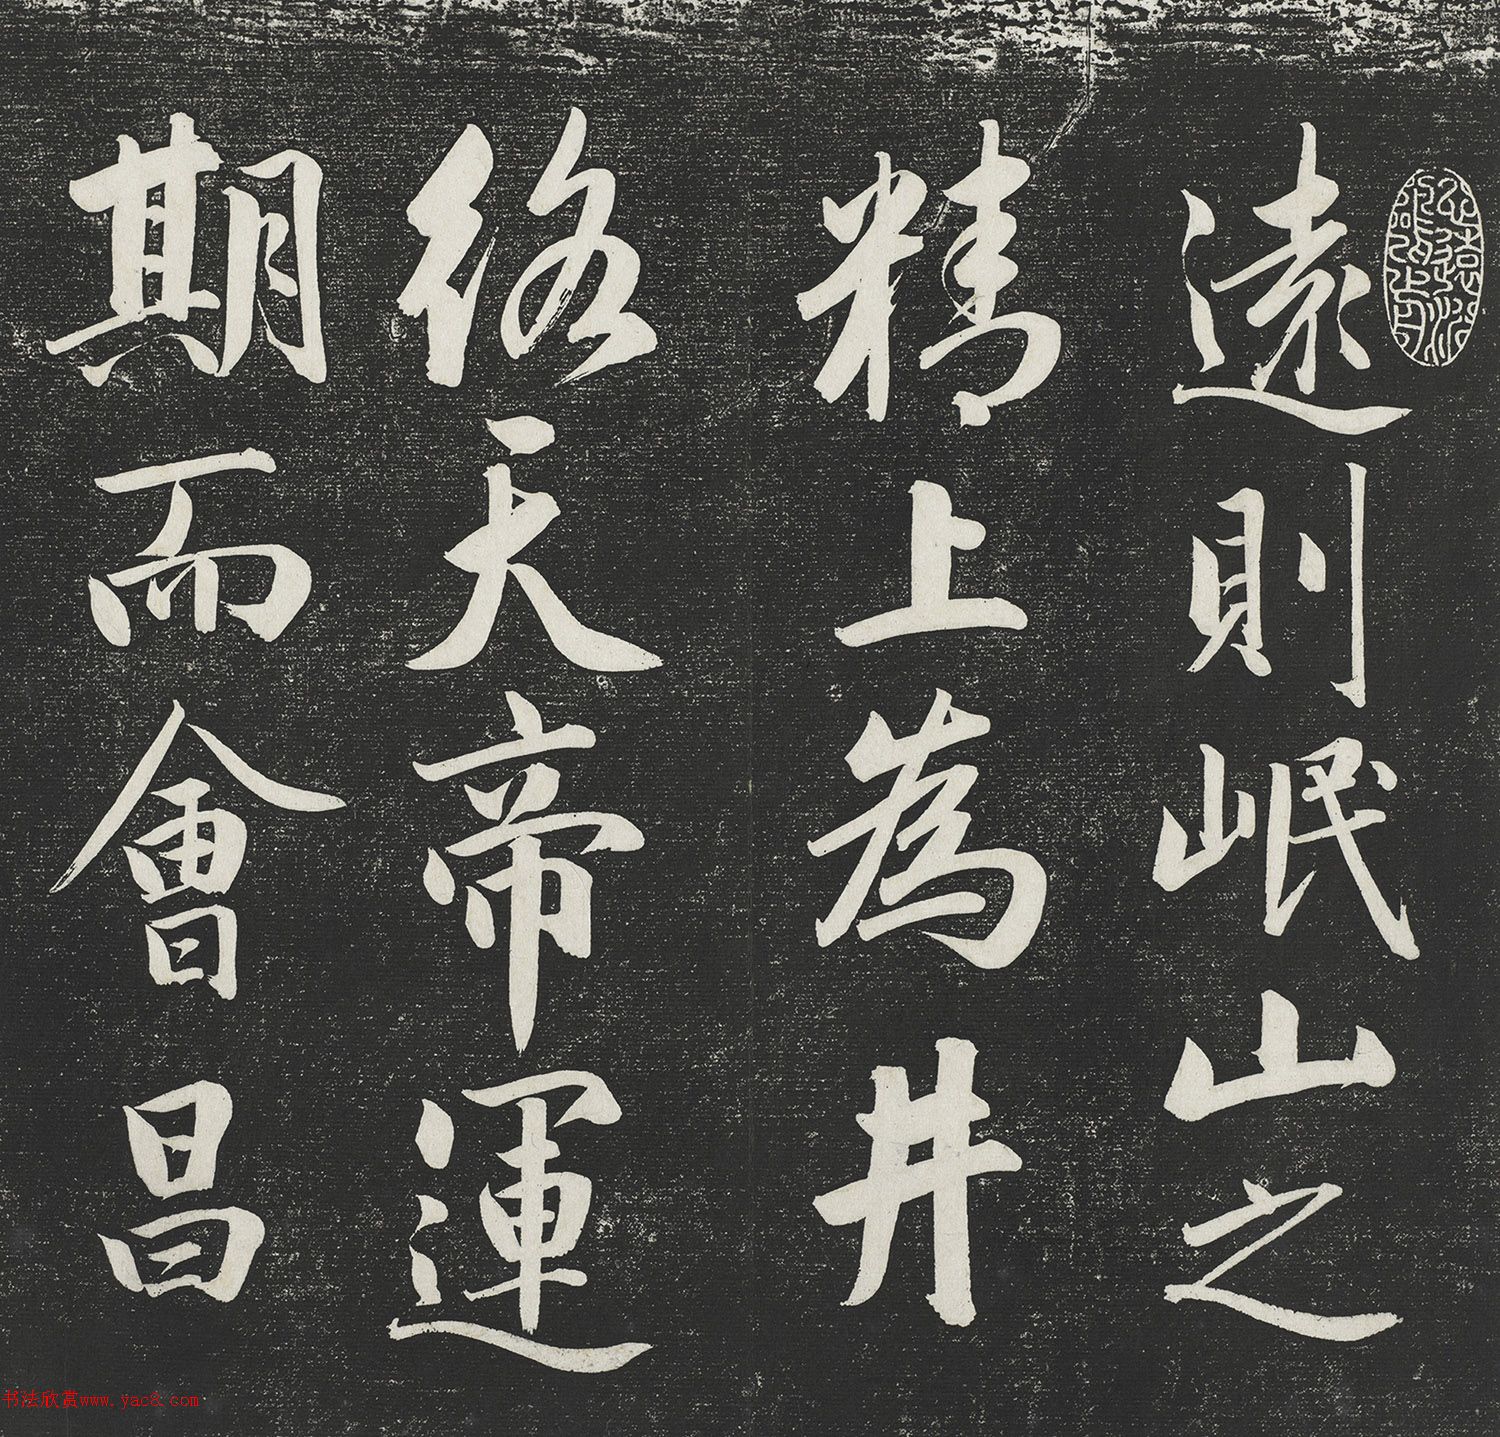 遠則岷山之
精上為井
絡天帝運
期而會昌
书法欣赏www.yac8.com